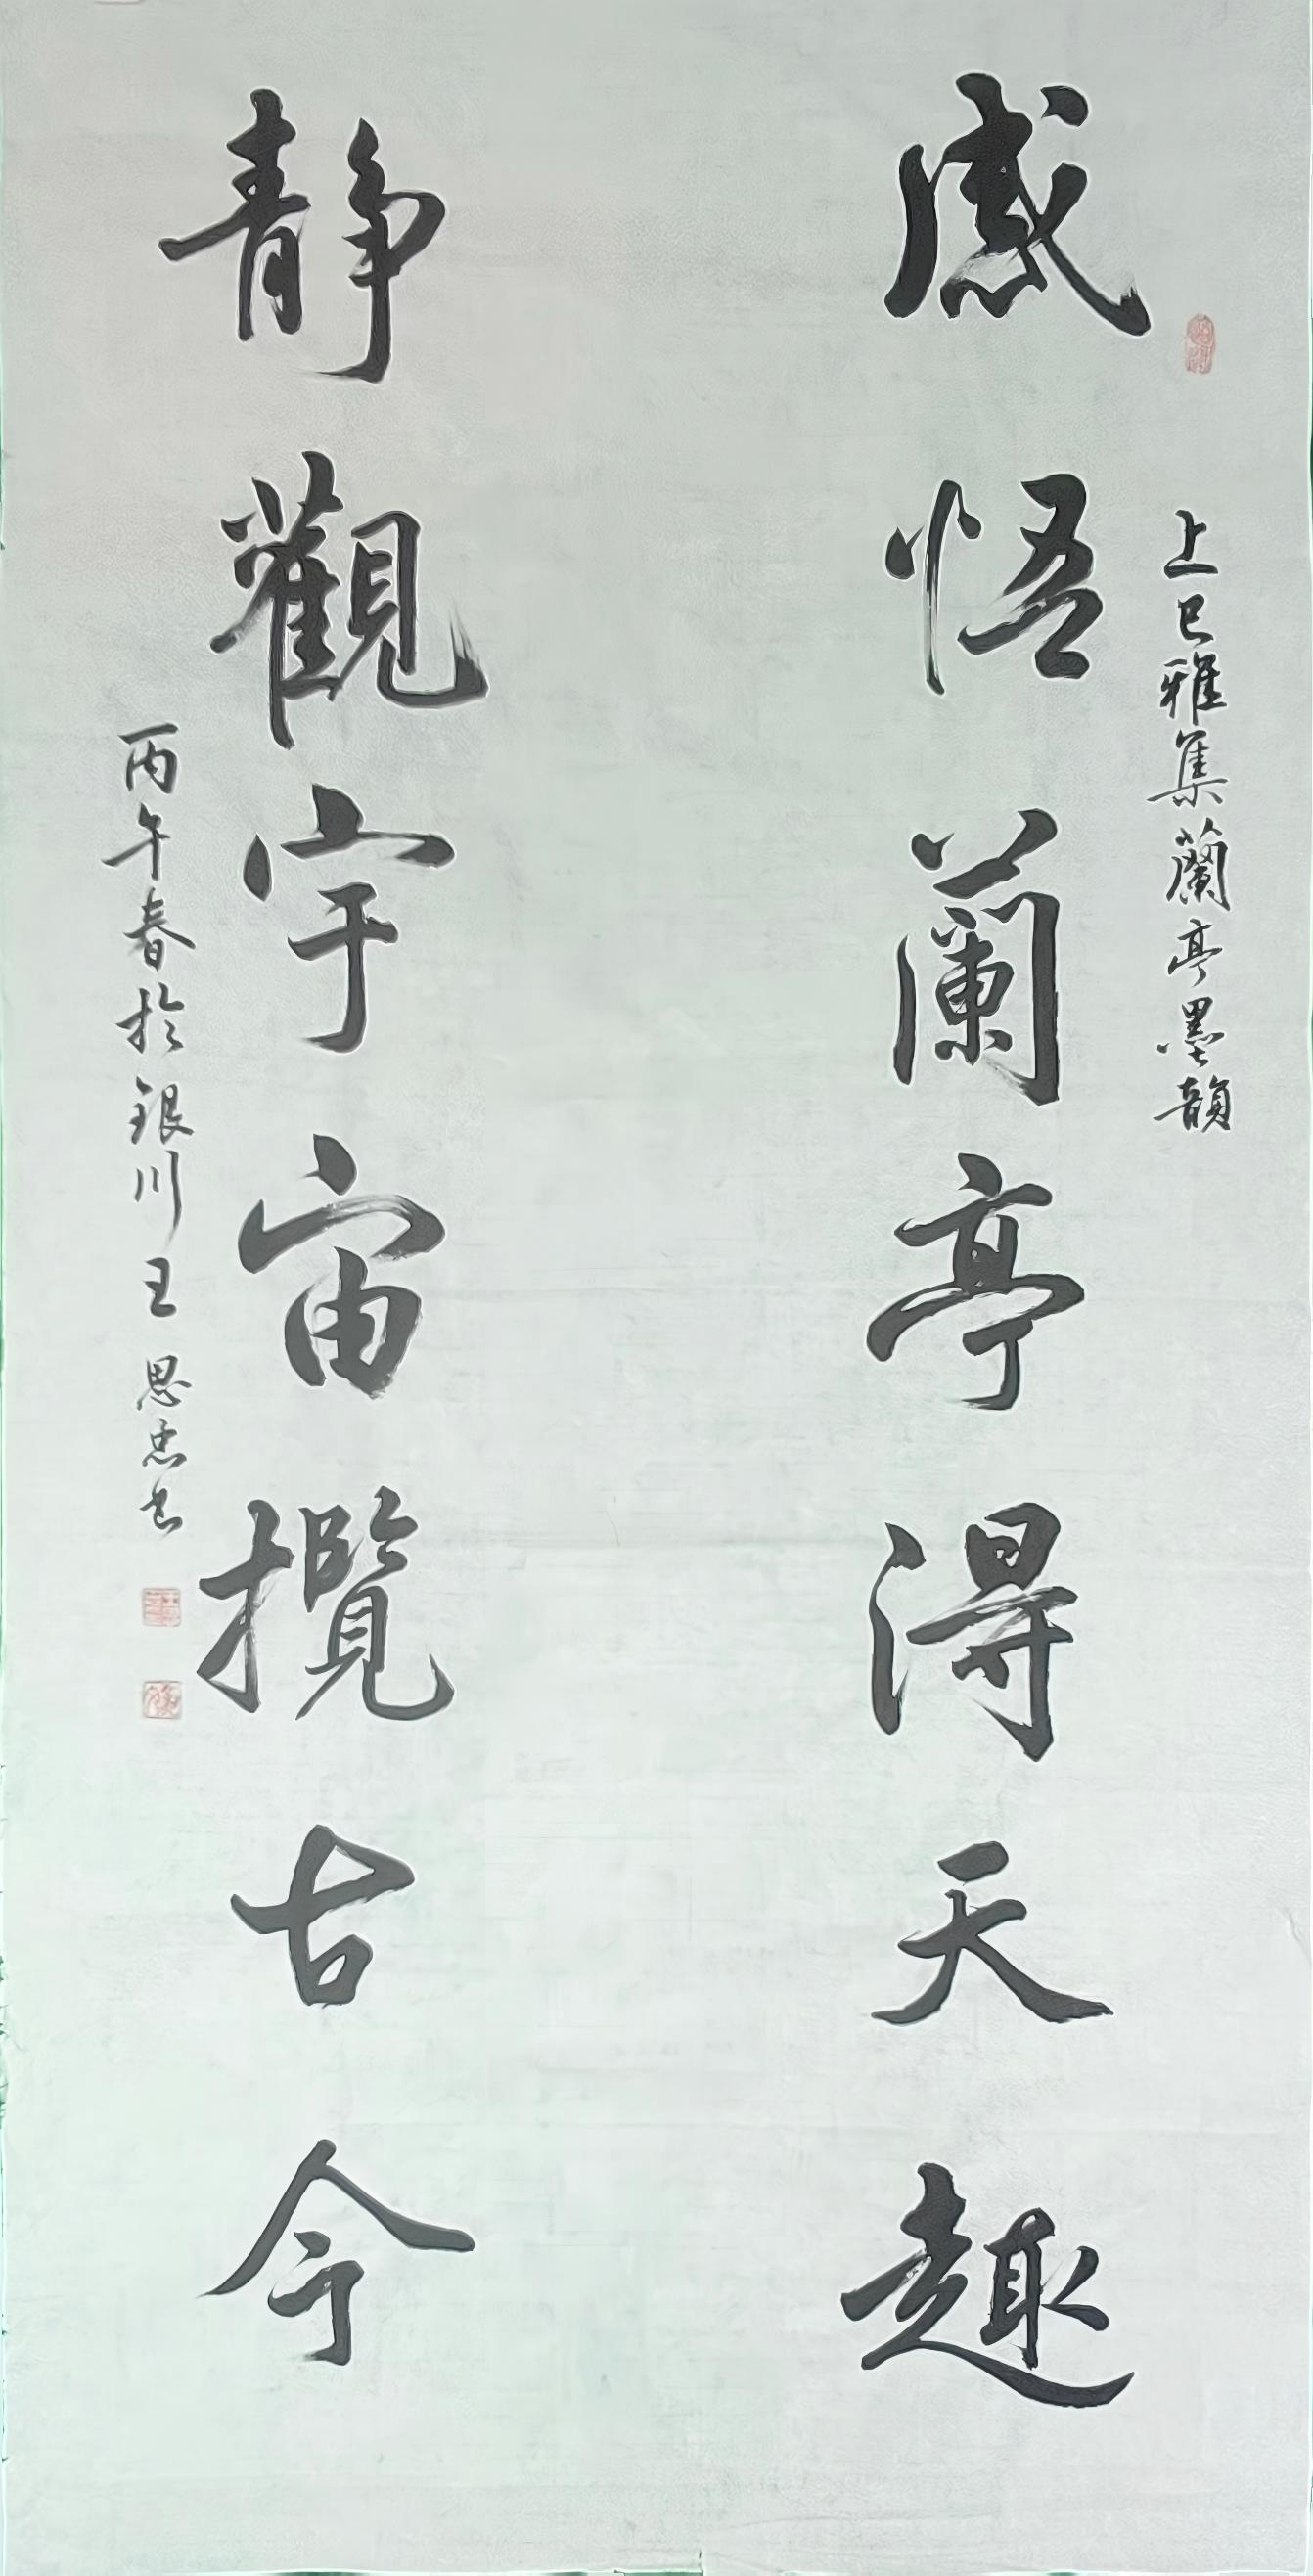 上巳雅集蘭亭墨韻
感悟蘭亭得天趣
靜觀宇宙攬古今
丙午春於銀川王思忠书